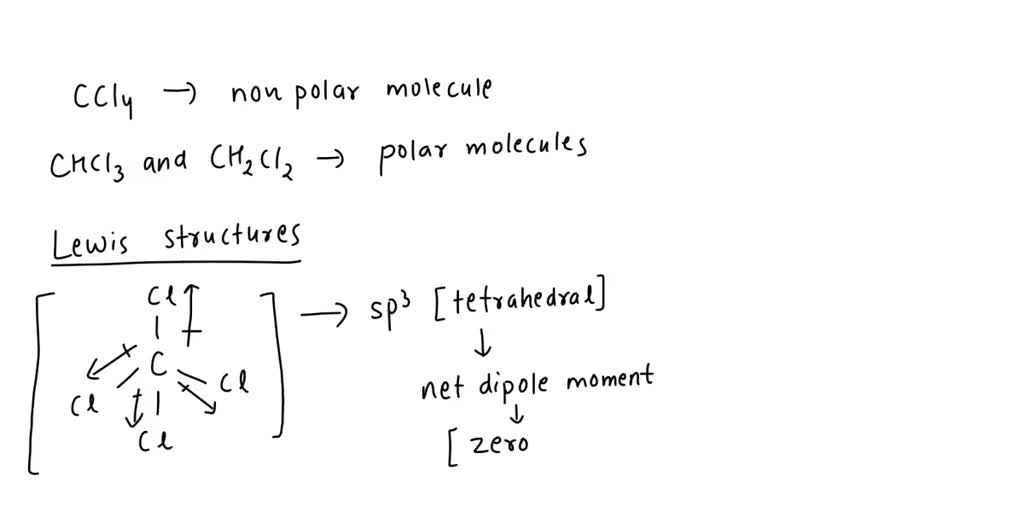 CCl4 → non polar molecule
CHCl3 and CH2Cl2 → polar molecules
Lewis structures
Cl
C
Cl
Cl
Cl
→ sp3 [tetrahedral]
↓
net dipole moment
↓
[zero